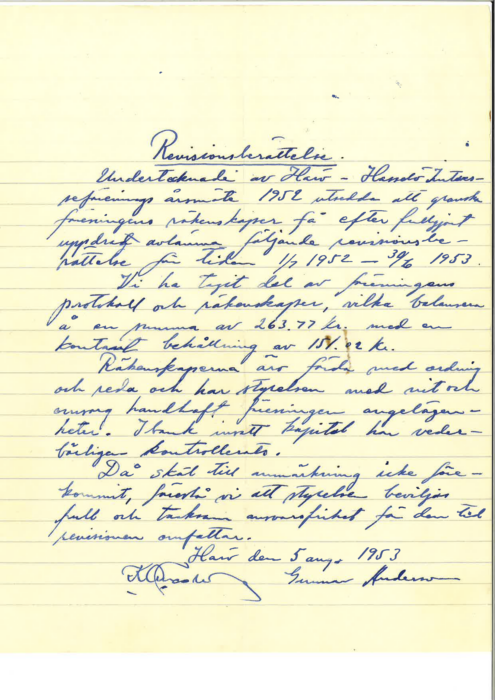 Revisionsberättelse.
Undertecknade av Harö - Hasselö Intres-
seförenings årsmöte 1952 utsedda att granska
föreningens räkenskaper få efter fullgjort
uppdrag avlämna följande revisionsbe-
rättelse för tiden 1/7 1952 – 30/6 1953.
Vi ha tagit del av föreningens
protokoll och räkenskaper, vilka balansera
å en summa av 263.77 kr med en
kontant behållning av 151.02 kr.
Räkenskaperna äro förda med ordning
och reda och har styrelsen med nit och
omsorg handhaft föreningen angelägen-
heter. I bank insatt kapital har veder-
börligen kontrollerats.
Då skäl till anmärkning icke före-
kommit, föreslå vi att styrelsen beviljas
full och tacksam ansvarsfrihet för den tid
revisionen omfattar.
Harö den 5 aug. 1953
Gunnar Anderson